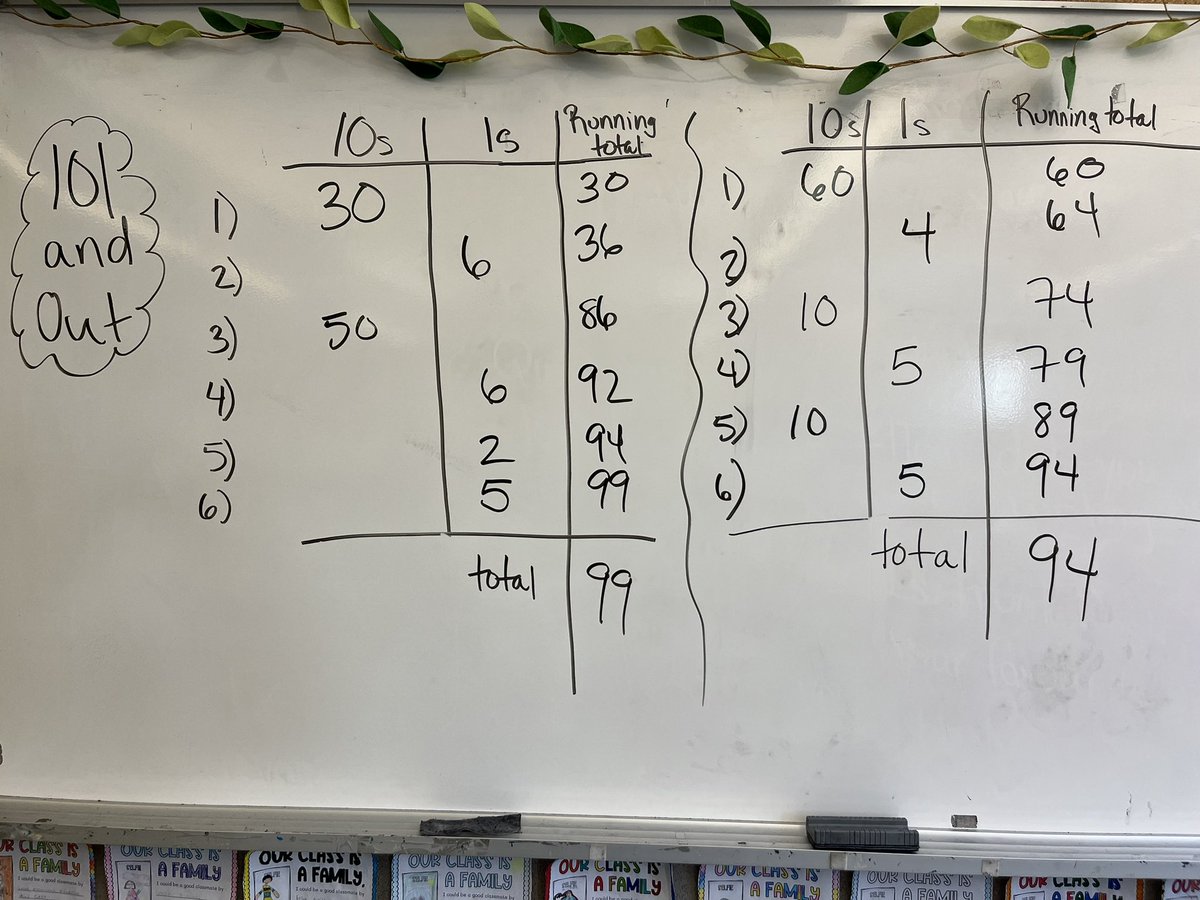 101
and
Out
10s 1s Running total
1) 30 30
2) 6 36
3) 50 86
4) 6 92
5) 2 94
6) 5 99
total 99
10s 1s Running total
1) 60 60
2) 4 64
3) 10 74
4) 5 79
5) 10 89
6) 5 94
total 94
OUR CLASS IS
A FAMILY
OUR CLASS IS
A FAMILY
I could be a good classmate by
OUR CLASS IS
A FAMILY.
I could be a good classmate by
OUR CLASS IS
A FAMILY
I could be a good classmate by
OUR CLASS IS
A FAMILY
OUR CLASS IS
A FAMILY
OUR CLASS IS
A FAMILY
OUR CLASS IS
A FAMILY
OUR